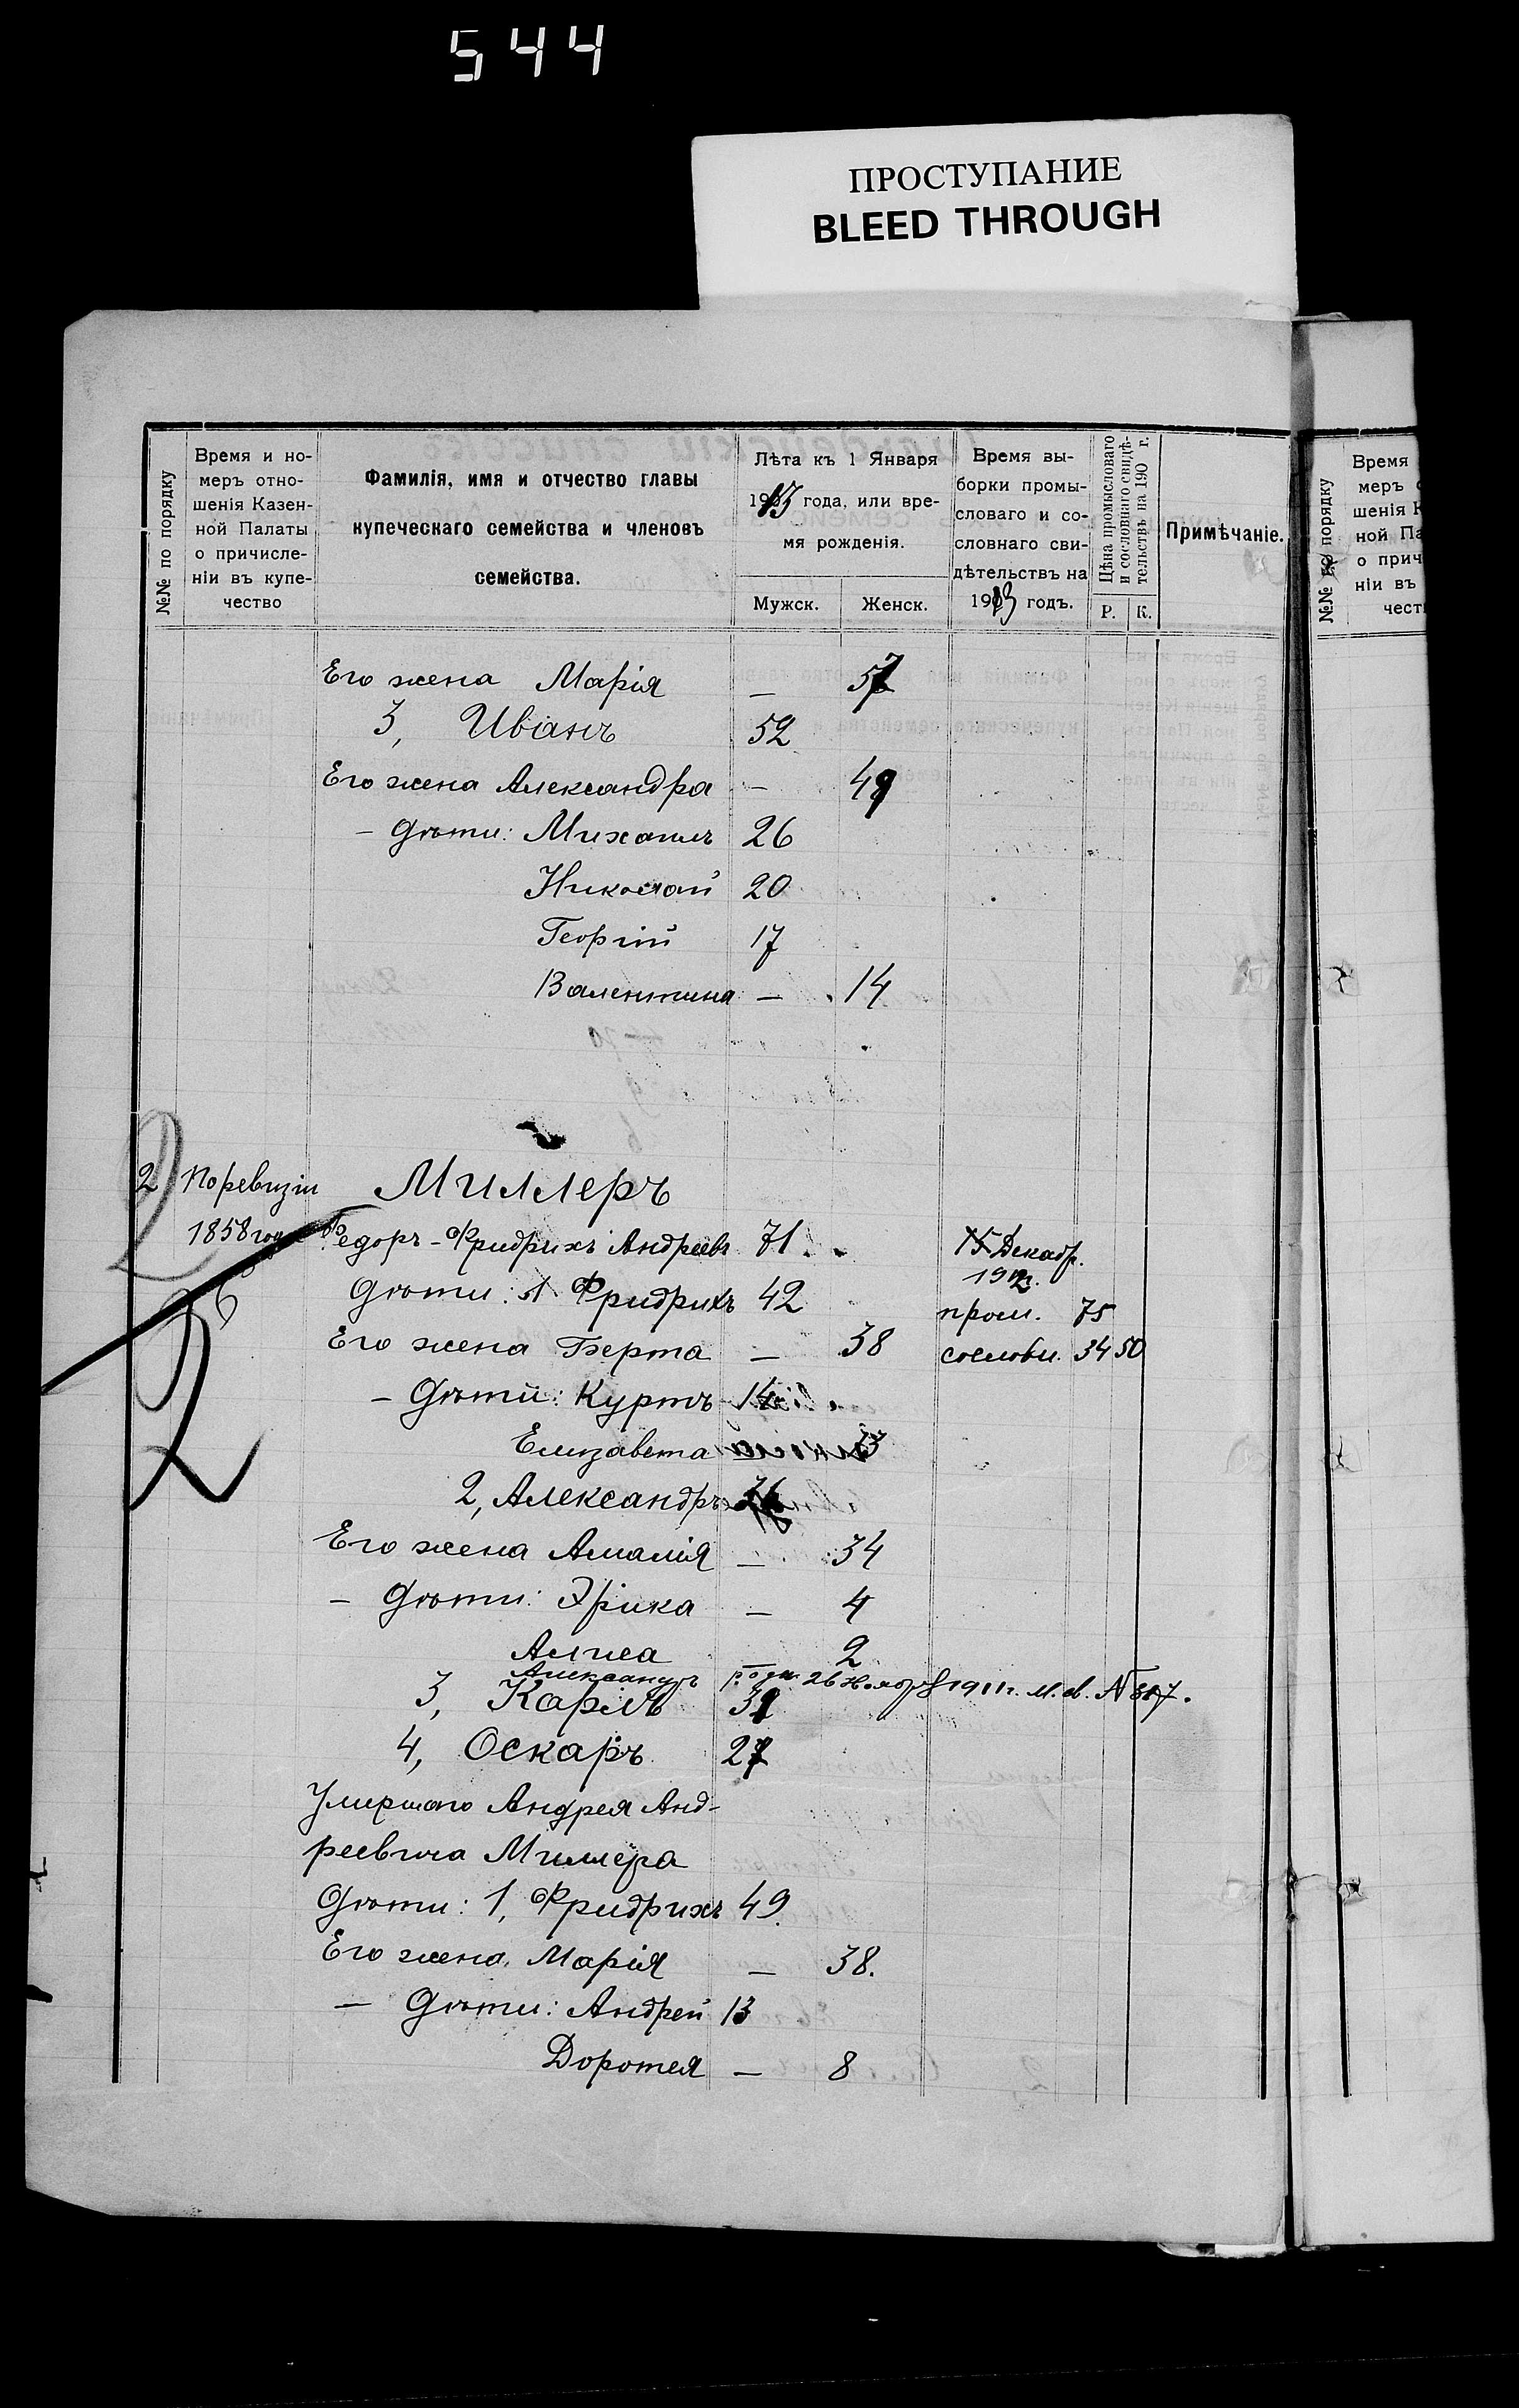 544
ПРОСТУПАНИЕ
BLEED THROUGH
№№ по порядку
Время и но-
меръ отно-
шенія Казен-
ной Палаты
о причисле-
ніи въ купе-
чество
Фамилія, имя и отчество главы
купеческаго семейства и членовъ
семейства.
Лѣта къ 1 Января
1913 года, или вре-
мя рожденія.
Мужск. Женск.
Время вы-
борки промы-
словаго и со-
словнаго сви-
дѣтельствъ на
1913 годъ.
Цѣна промысловаго
и сословнаго свидѣ-
тельствъ на 190 г.
Р. К.
Примѣчаніе.
№№ по порядку
Время
меръ
шенія К
ной Па
о прич
ніи въ
чест
Его жена Марія — 57
3, Иванъ 52
Его жена Александра — 49
— Дѣти: Михаилъ 26
Николай 20
Георгій 17
Валентина — 14
2 По ревизіи Миллеръ
1858 года Федоръ-Фридрихъ Андреевъ 71 15 Декабр.
1912г.
Дѣти: 1 Фридрихъ 42 пром. 75
Его жена Берта — 38 сословн. 34 50
— Дѣти: Куртъ 14
Елизавета — 13
2, Александръ 36
Его жена Амалія — 34
— Дѣти: Эрика — 4
Алиса — 2
Александръ родн. 26 Ноября 1911г. М. С. № 817.
3, Карлъ 31
4, Оскаръ 27
Умершаго Андрея Анд-
реевича Миллера
Дѣти: 1, Фридрихъ 49.
Его жена, Марія — 38.
— Дѣти: Андрей 13
Доротея — 8